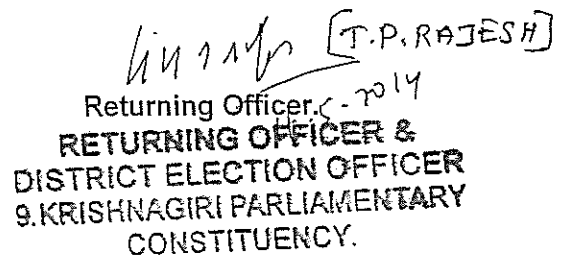 [T.P. RAJESH]
Returning Officer.
5-2014
RETURNING OFFICER &
DISTRICT ELECTION OFFICER
9.KRISHNAGIRI PARLIAMENTARY
CONSTITUENCY.